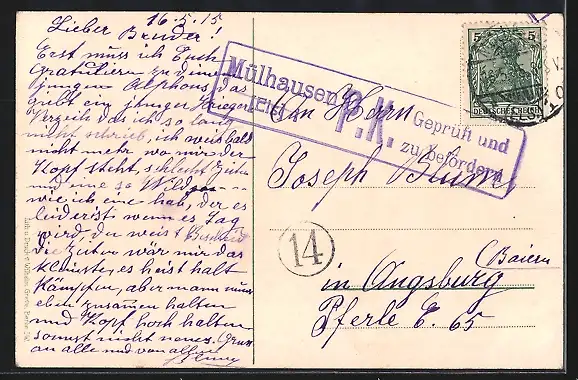 16.5.15
Lieber Bruder!
Erst muss ich Euch
Gratulieren zu deinem
Jungen Alphons, das
gibt ein junger Krieger
Verzeih das ich so lang
nicht schrieb, ich weis bald
nicht mehr wo mir der
Kopf steht, schlecht Zeiten
und eine so
wie ich eine hab, der es
leider ist wenn es Tag
wird, du weist Bescheid
die Zeiten wär mir das
kleinste, es heist halt
Kämpfen, aber mann muss
eben zusammen halten
und Kopf hoch halten
sonst nicht neues. Gruss
an alle und von allen
Mülhausen
P.K.
Geprüft und
zu befördern
An Herrn
Joseph Blüm
14
in Augsburg (Baiern
Pferle E. 65
5 5
DEUTSCHES REICH